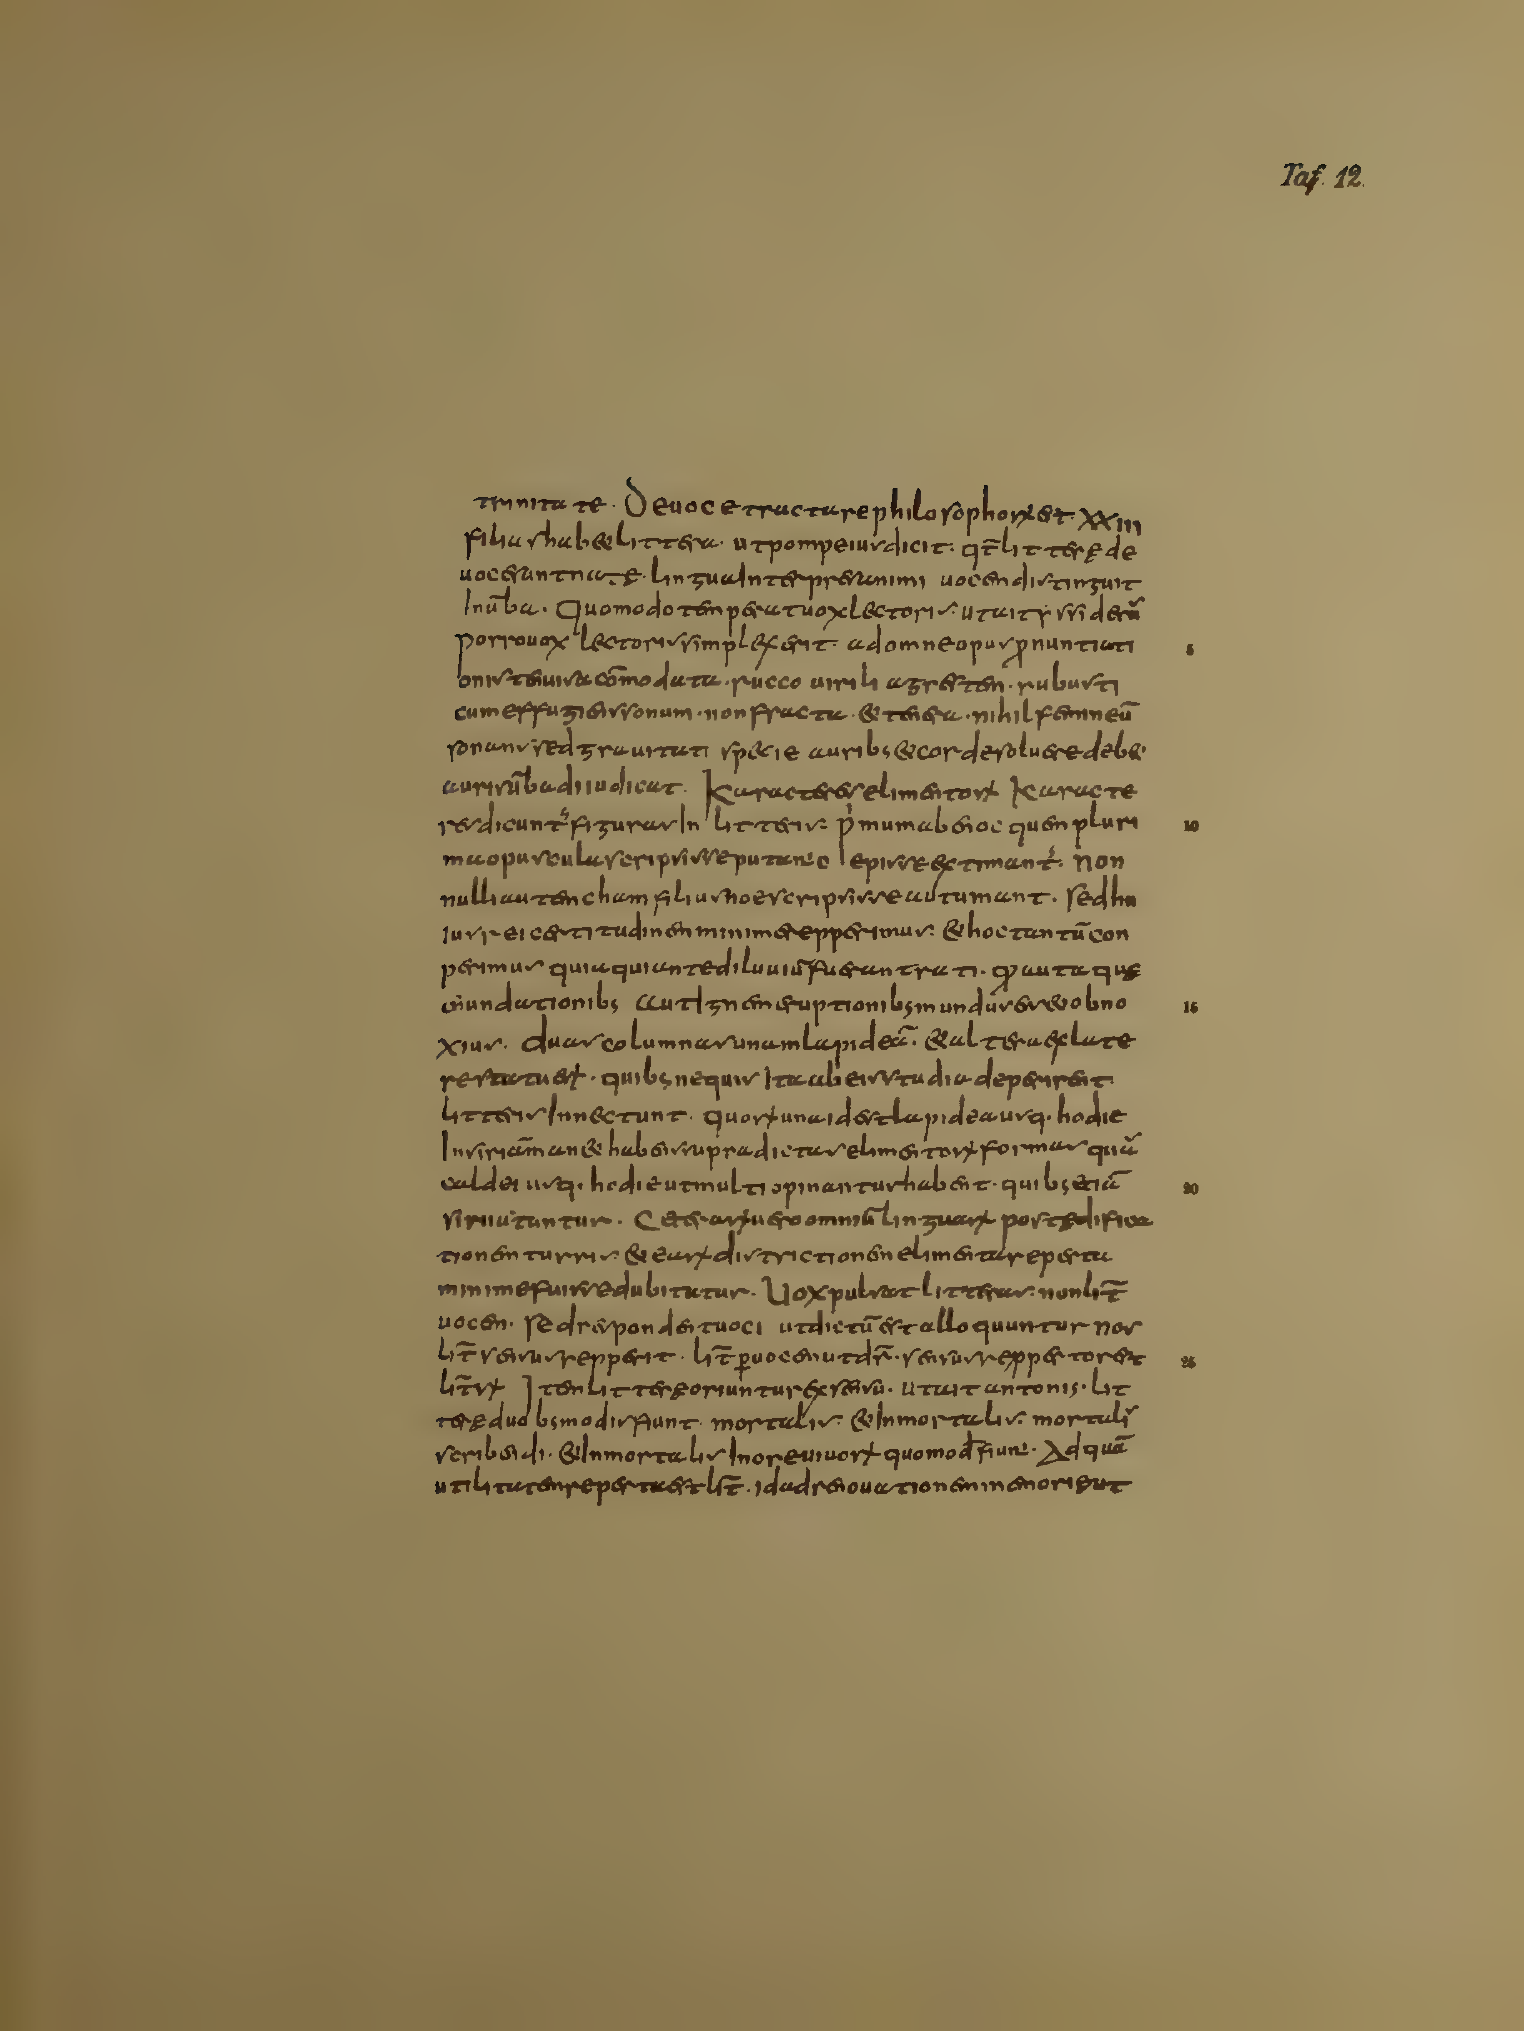 Taf. 12.
trinitate. De voce tractare philosophorꝝ est. XXIII
filias hab& littera. ut pompeius dicit. qt̄ litterę de
voce sunt natę. lingua interpres animi vocem distinguit
In ūba. Quomodo temperat vox lectoris. ut ait
porro vox lectoris simplex erit. ad omne opus ꝓnuntiati
onis tenuis accōmodata. succo virili agrestem. rubusti
cum effugiens sonum. non fracta & tenera. nihil femineū
sonans sed gravitati spəcie auribs & corde solvere deb&
auris ūba diiudicat. Karacteres elimentorꝝ Karacte
res dicunt figuras In litteris. pmum ab enoc quem pluri
ma opuscula scripsisse putant lepisse extimant. Non
nulli autem cham filius noe scripsisse autumant. sed hu
ius rei certitudinem minime repperimus. & hoc tantū con
perimus quia qui ante diluviū fuerant rati. ꝓ aut aquę
inundationibs aut Ignem eruptionibs mundus ess& obno
xius. duas columnas unam lapideā. & altera ex late
re statuerꝝ. quibs nequis Ita ab eis studia deperirent
litteris Innectunt. quorꝝ una id est lapidea usq. hodie
In siriā man& habens supradictas elimentorꝝ formas quā
caldei usq. hodie ut multi opinantur habent. quibs etiā
siri utuntur. Ceterarꝝ vero omniū linguarꝝ post edifica
tionem turris. & earꝝ districtionem elimenta reperta
minime fuisse dubitatur. Vox pulsat litteras. non lit̄
vocem. sed respondent voci ut dictū est alloquuntur nos
lit̄ sensus repperit. lit̄ ꝑ vocem ut dr̄. sensus reppertor est
lit̄rꝝ Item litterę oriuntur ex sensu. ut ait antonis. lit
terę duobs modis fiunt. mortalis. & Inmortalis. mortali
scribendi. & Inmortalis In ore vivorꝝ quomodo fiunt. Ad quā
utilitatem reperta est lit̄. id ad renovationem memorię ut
5
10
15
20
25